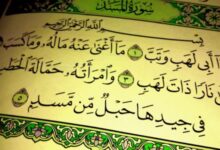 سُورَةُ المَسَدِ
بِسْمِ اللَّهِ الرَّحْمَٰنِ الرَّحِيمِ
أَبِي لَهَبٍ وَتَبَّ ١ مَا أَغْنَىٰ عَنْهُ مَالُهُ وَمَا كَسَبَ
نَارًا ذَاتَ لَهَبٍ ٣ وَامْرَأَتُهُ حَمَّالَةَ الْحَطَبِ
فِي جِيدِهَا حَبْلٌ مِّن مَّسَدٍ ٥